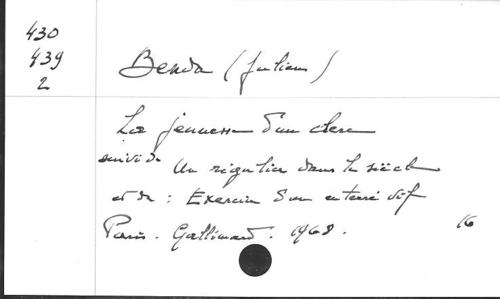 430
439
2
Benda (Julien)
La jeunesse d'un clerc
suivi de Un régulier dans le siècle
et de : Exercice d'un enterré vif
Paris. Gallimard. 1968.
16